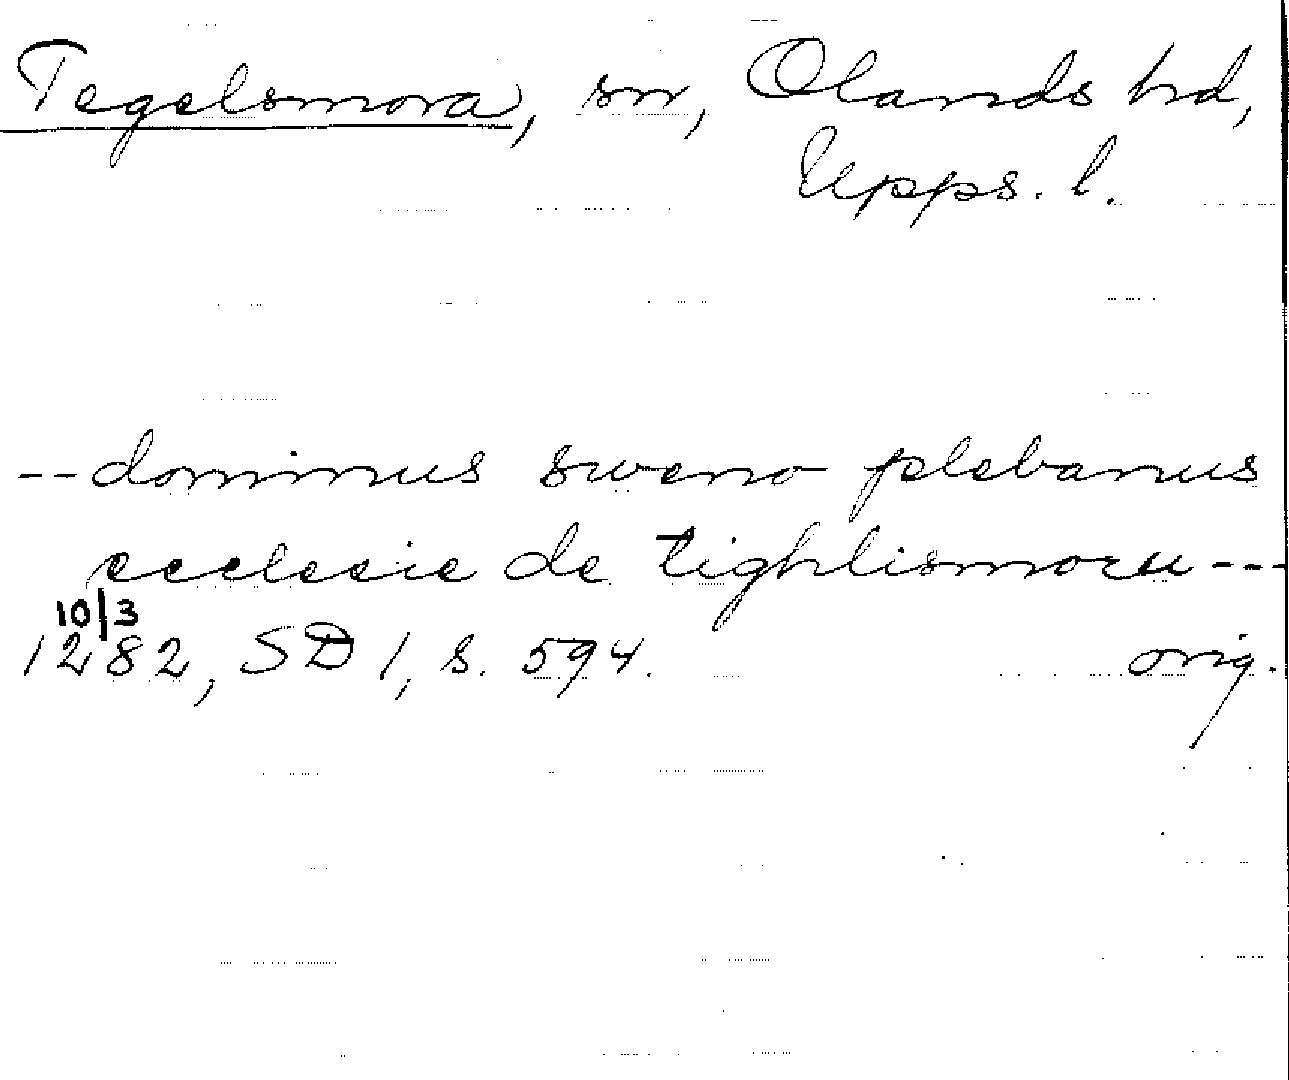 Tegelsmora, sn, Olands hd,
Upps. l.
-- dominus sweno plebanus
ecclesie de tighlismoru ---
10/3
1282, SD 1, s. 594. orig.